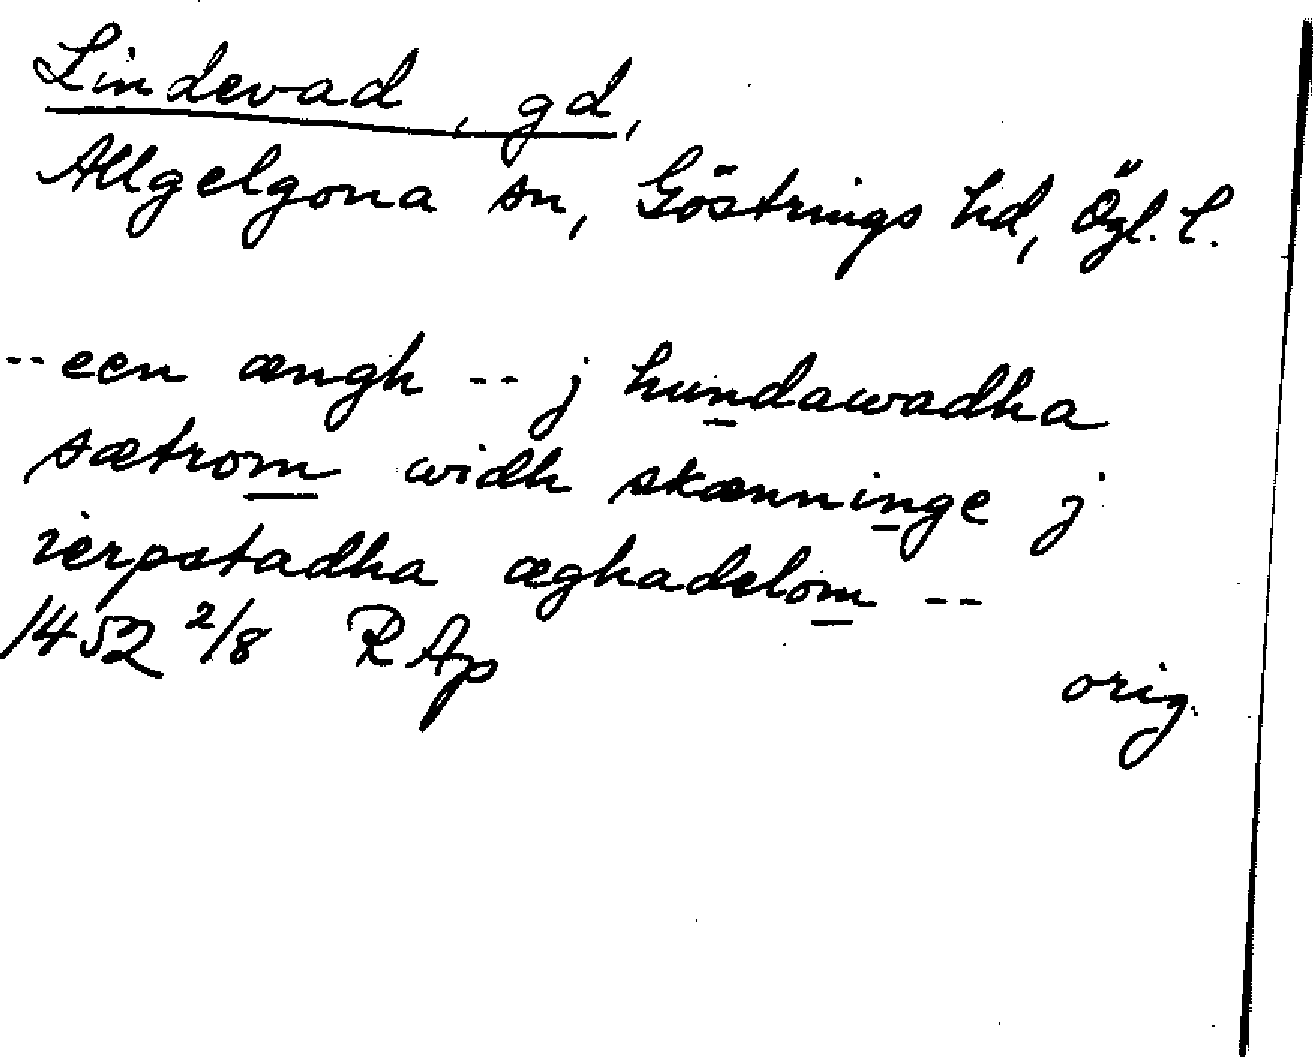 Lindevad, gd,
Allgelgona sn, Göstrings hd, Ögl. l.
-- een ængh -- j hundawadha
sætrom widh skænninge j
ierpstadha æghadelom --
1452 2/8 RAp
orig.